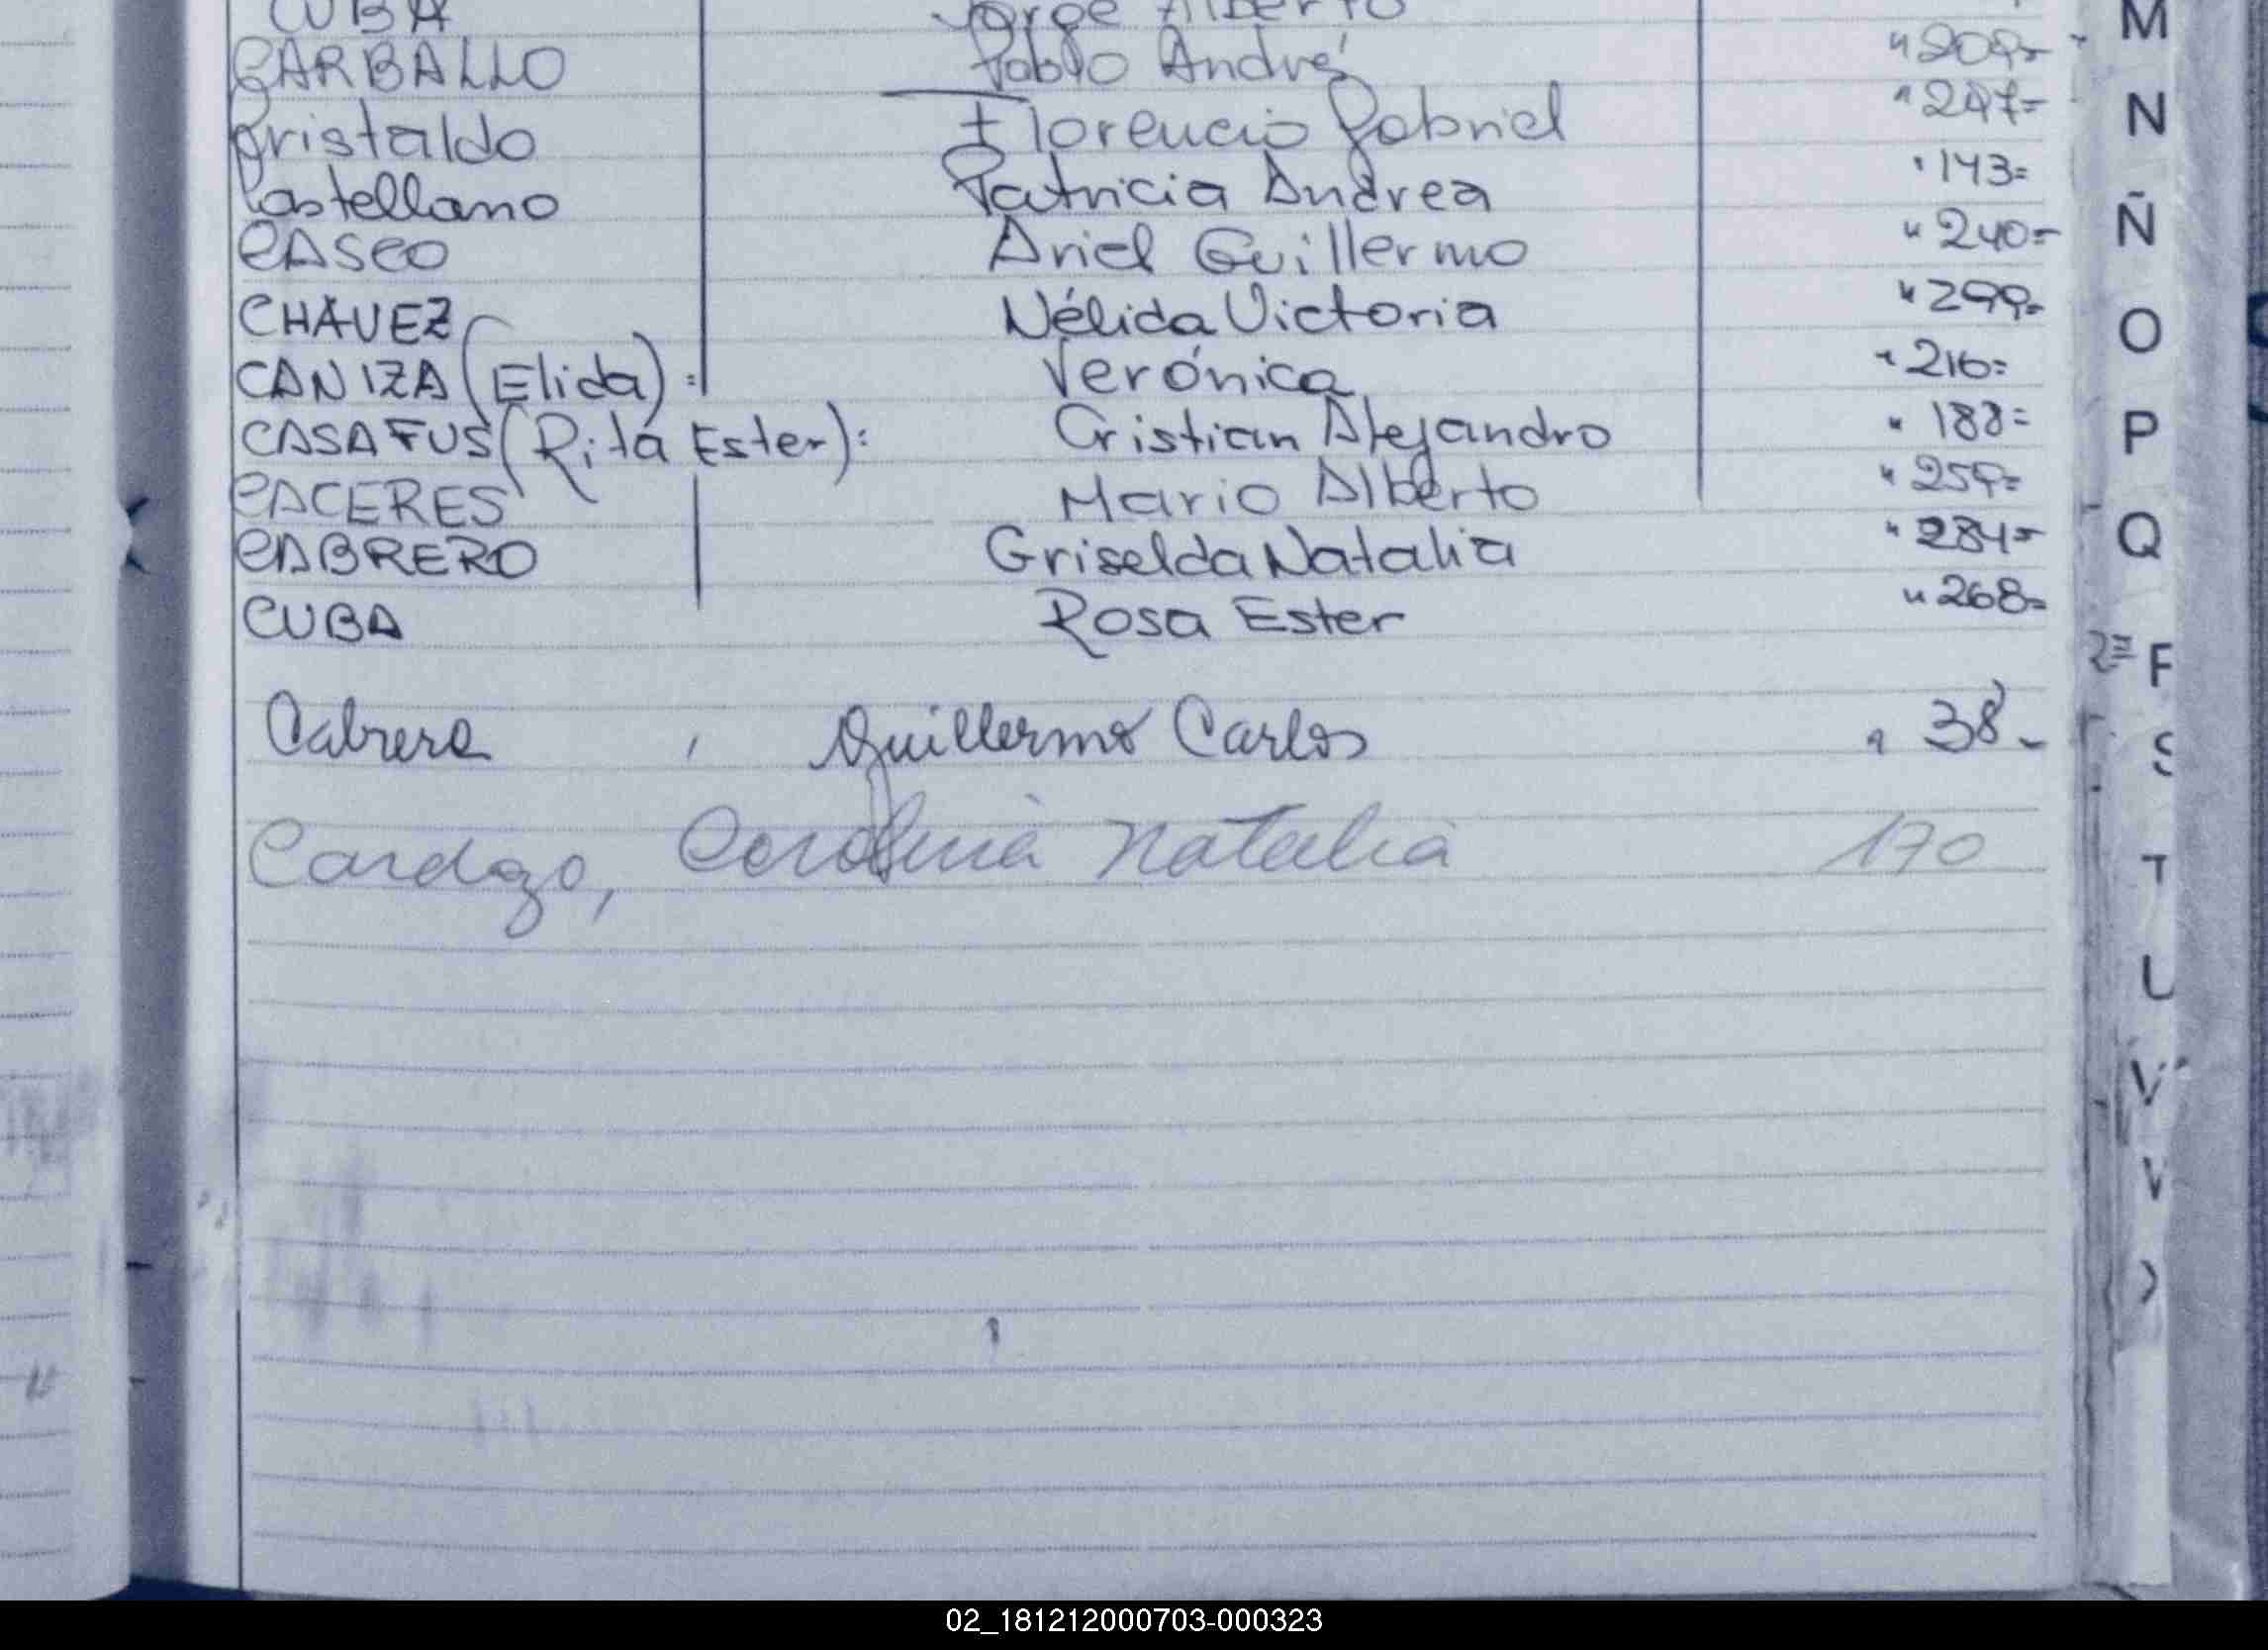 CUBA Jorge Alberto
CARBALLO Pablo André " 209=
Cristaldo Florencio Gabriel " 247=
Castellano Patricia Andrea " 143=
CASCO Ariel Guillermo " 240=
CHÁVEZ Nélida Victoria " 299=
CANIZA (Elida) = Verónica " 216=
CASAFUS (Rita Ester): Cristian Alejandro " 188=
CACERES Mario Alberto " 259=
CABRERO Griselda Natalia " 284=
CUBA Rosa Ester " 268=
Cabrera, Guillermo Carlos " 38-
Cardozo, Carolina Natalia 170
M
N
Ñ
O
P
Q
R
S
T
U
V
02_181212000703-000323